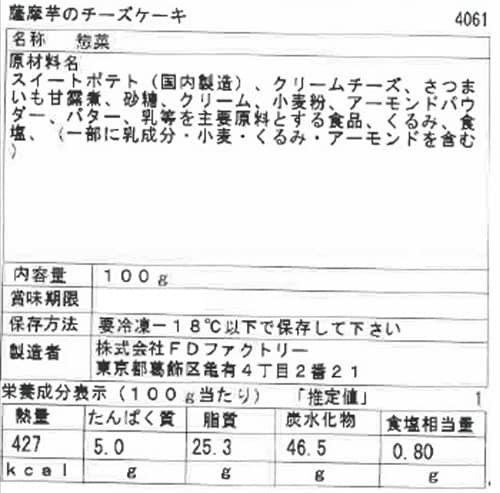 薩摩芋のチーズケーキ 4061
名称 惣菜
原材料名
スイートポテト（国内製造）、クリームチーズ、さつま
いも甘露煮、砂糖、クリーム、小麦粉、アーモンドパウ
ダー、バター、乳等を主要原料とする食品、くるみ、食
塩、（一部に乳成分・小麦・くるみ・アーモンドを含む
）
内容量 １００ｇ
賞味期限
保存方法 要冷凍－１８℃以下で保存して下さい
製造者 株式会社ＦＤファクトリー
東京都葛飾区亀有４丁目２番２１
栄養成分表示（１００ｇ当たり） 「推定値」 1
熱量 たんぱく質 脂質 炭水化物 食塩相当量
427 5.0 25.3 46.5 0.80
ｋｃａｌ ｇ ｇ ｇ ｇ